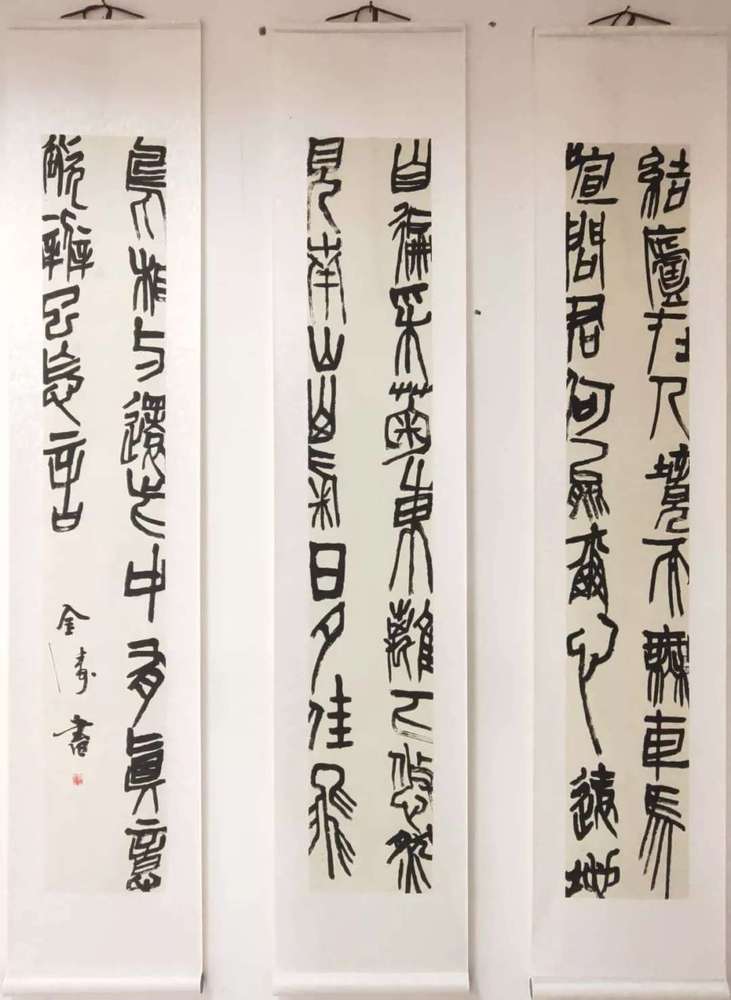 結廬在人境而無車馬
喧問君何能爾心遠地
自偏采菊東籬下悠然
見南山山氣日夕佳飛
鳥相與還此中有眞意
欲辨已忘言
金涛書